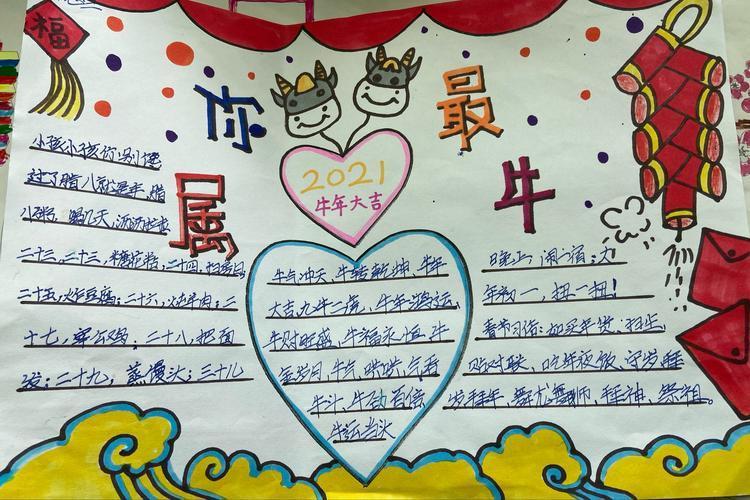 福
你属最牛
2021
牛年大吉
小孩小孩你别馋
过了腊八就是年,腊
小粥,喝几天,沥沥拉拉
二十三,二十三,糖瓜粘,二十四,扫房日,
二十五,炸豆腐;二十六,炖羊肉;二
十七,宰公鸡;二十八,把面
发;二十九,蒸馒头;三十儿
晚上闹一宿;大
年初一,扭一扭!
牛气冲天,牛转乾坤,牛年
大吉,九牛二虎,牛年鸿运,
牛财旺盛,牛福永恒,牛
金岁月,牛气哄哄,气吞
牛斗,牛劲百倍
牛运当头
春节习俗:购买年货,扫尘
贴对联,吃年夜饭,守岁,拜
岁,拜年,舞龙舞狮,拜神,祭祖。